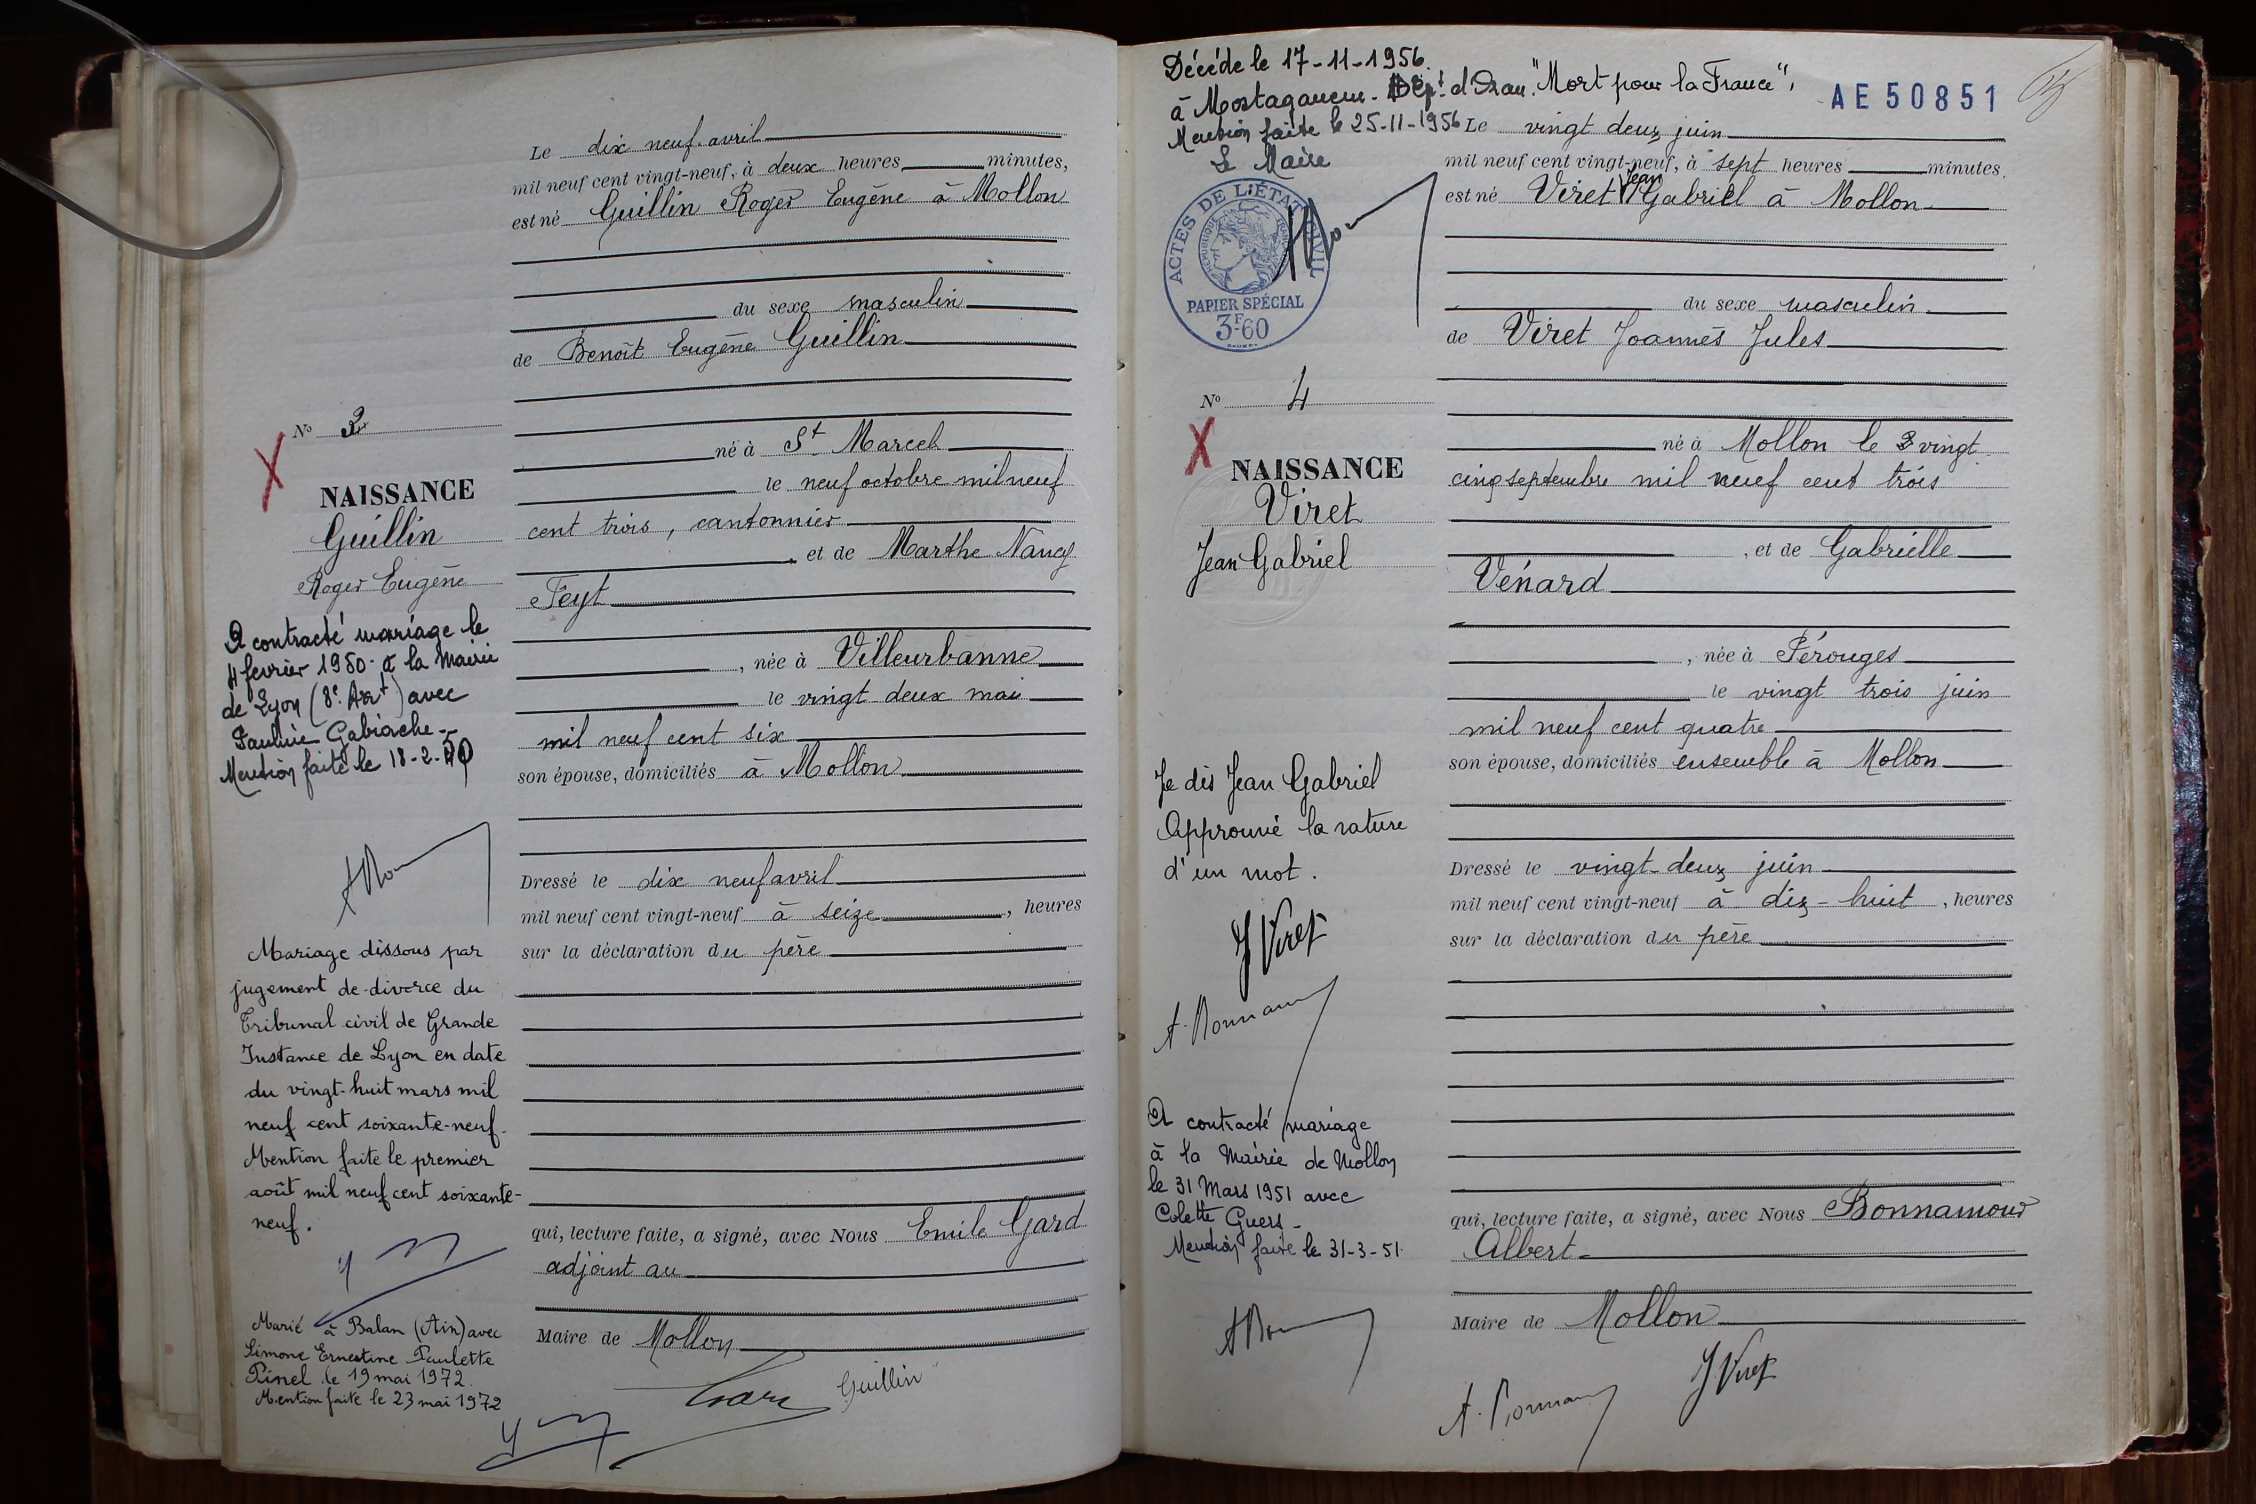 Le dix neuf avril
mil neuf cent vingt-neuf, à deux heures minutes,
est né Guillin Roger Eugène à Mollon
du sexe masculin
de Benoît Eugène Guillin
né à St Marcel
le neuf octobre mil neuf
cent trois, cantonnier
et de Marthe Nancy
Feyt
, née à Villeurbanne
le vingt deux mai
mil neuf cent six
son épouse, domiciliés à Mollon
Dressé le dix neuf avril
mil neuf cent vingt-neuf à seize, heures
sur la déclaration du père
qui, lecture faite, a signé, avec Nous Emile Gard
adjoint au
Maire de Mollon
Gard Guillin
No 3
NAISSANCE
Guillin
Roger Eugène
A contracté mariage le
4 fevrier 1950 à la Mairie
de Lyon (8e Arrt) avec
Pauline Gabiache -
Mention faite le 18-2-50
Mariage dissous par
jugement de divorce du
Tribunal civil de Grande
Instance de Lyon en date
du vingt-huit mars mil
neuf cent soixante-neuf.
Mention faite le premier
août mil neuf cent soixante-
neuf.
Marié à Balan (Ain) avec
Simone Ernestine Paulette
Pinel le 19 mai 1972.
Mention faite le 23 mai 1972
Décédé le 17-11-1956.
à Mostaganem. Dépt d'Oran. "Mort pour la France".
Mention faite le 25-11-1956
Le Maire
AE 50851
ACTES DE L'ÉTAT CIVIL
PAPIER SPÉCIAL
3F60
No 4
NAISSANCE
Viret
Jean Gabriel
Je dis Jean Gabriel
Approuvé la rature
d'un mot.
J Viret
A. Bonnamour
A contracté mariage
à la Mairie de Mollon
le 31 Mars 1951 avec
Colette Guers -
Mention faite le 31-3-51.
Le vingt deux juin
mil neuf cent vingt-neuf, à sept heures minutes,
Jean
est né Viret Gabriel à Mollon
du sexe masculin
de Viret Joannès Jules
né à Mollon le vingt
cinq septembre mil neuf cent trois
, et de Gabrielle
Vénard
, née à Pérouges
le vingt trois juin
mil neuf cent quatre
son épouse, domiciliés ensemble à Mollon
Dressé le vingt-deux juin
mil neuf cent vingt-neuf à dix-huit, heures
sur la déclaration du père
qui, lecture faite, a signé, avec Nous Bonnamour
Albert
Maire de Mollon
A. Bonnamour J Viret